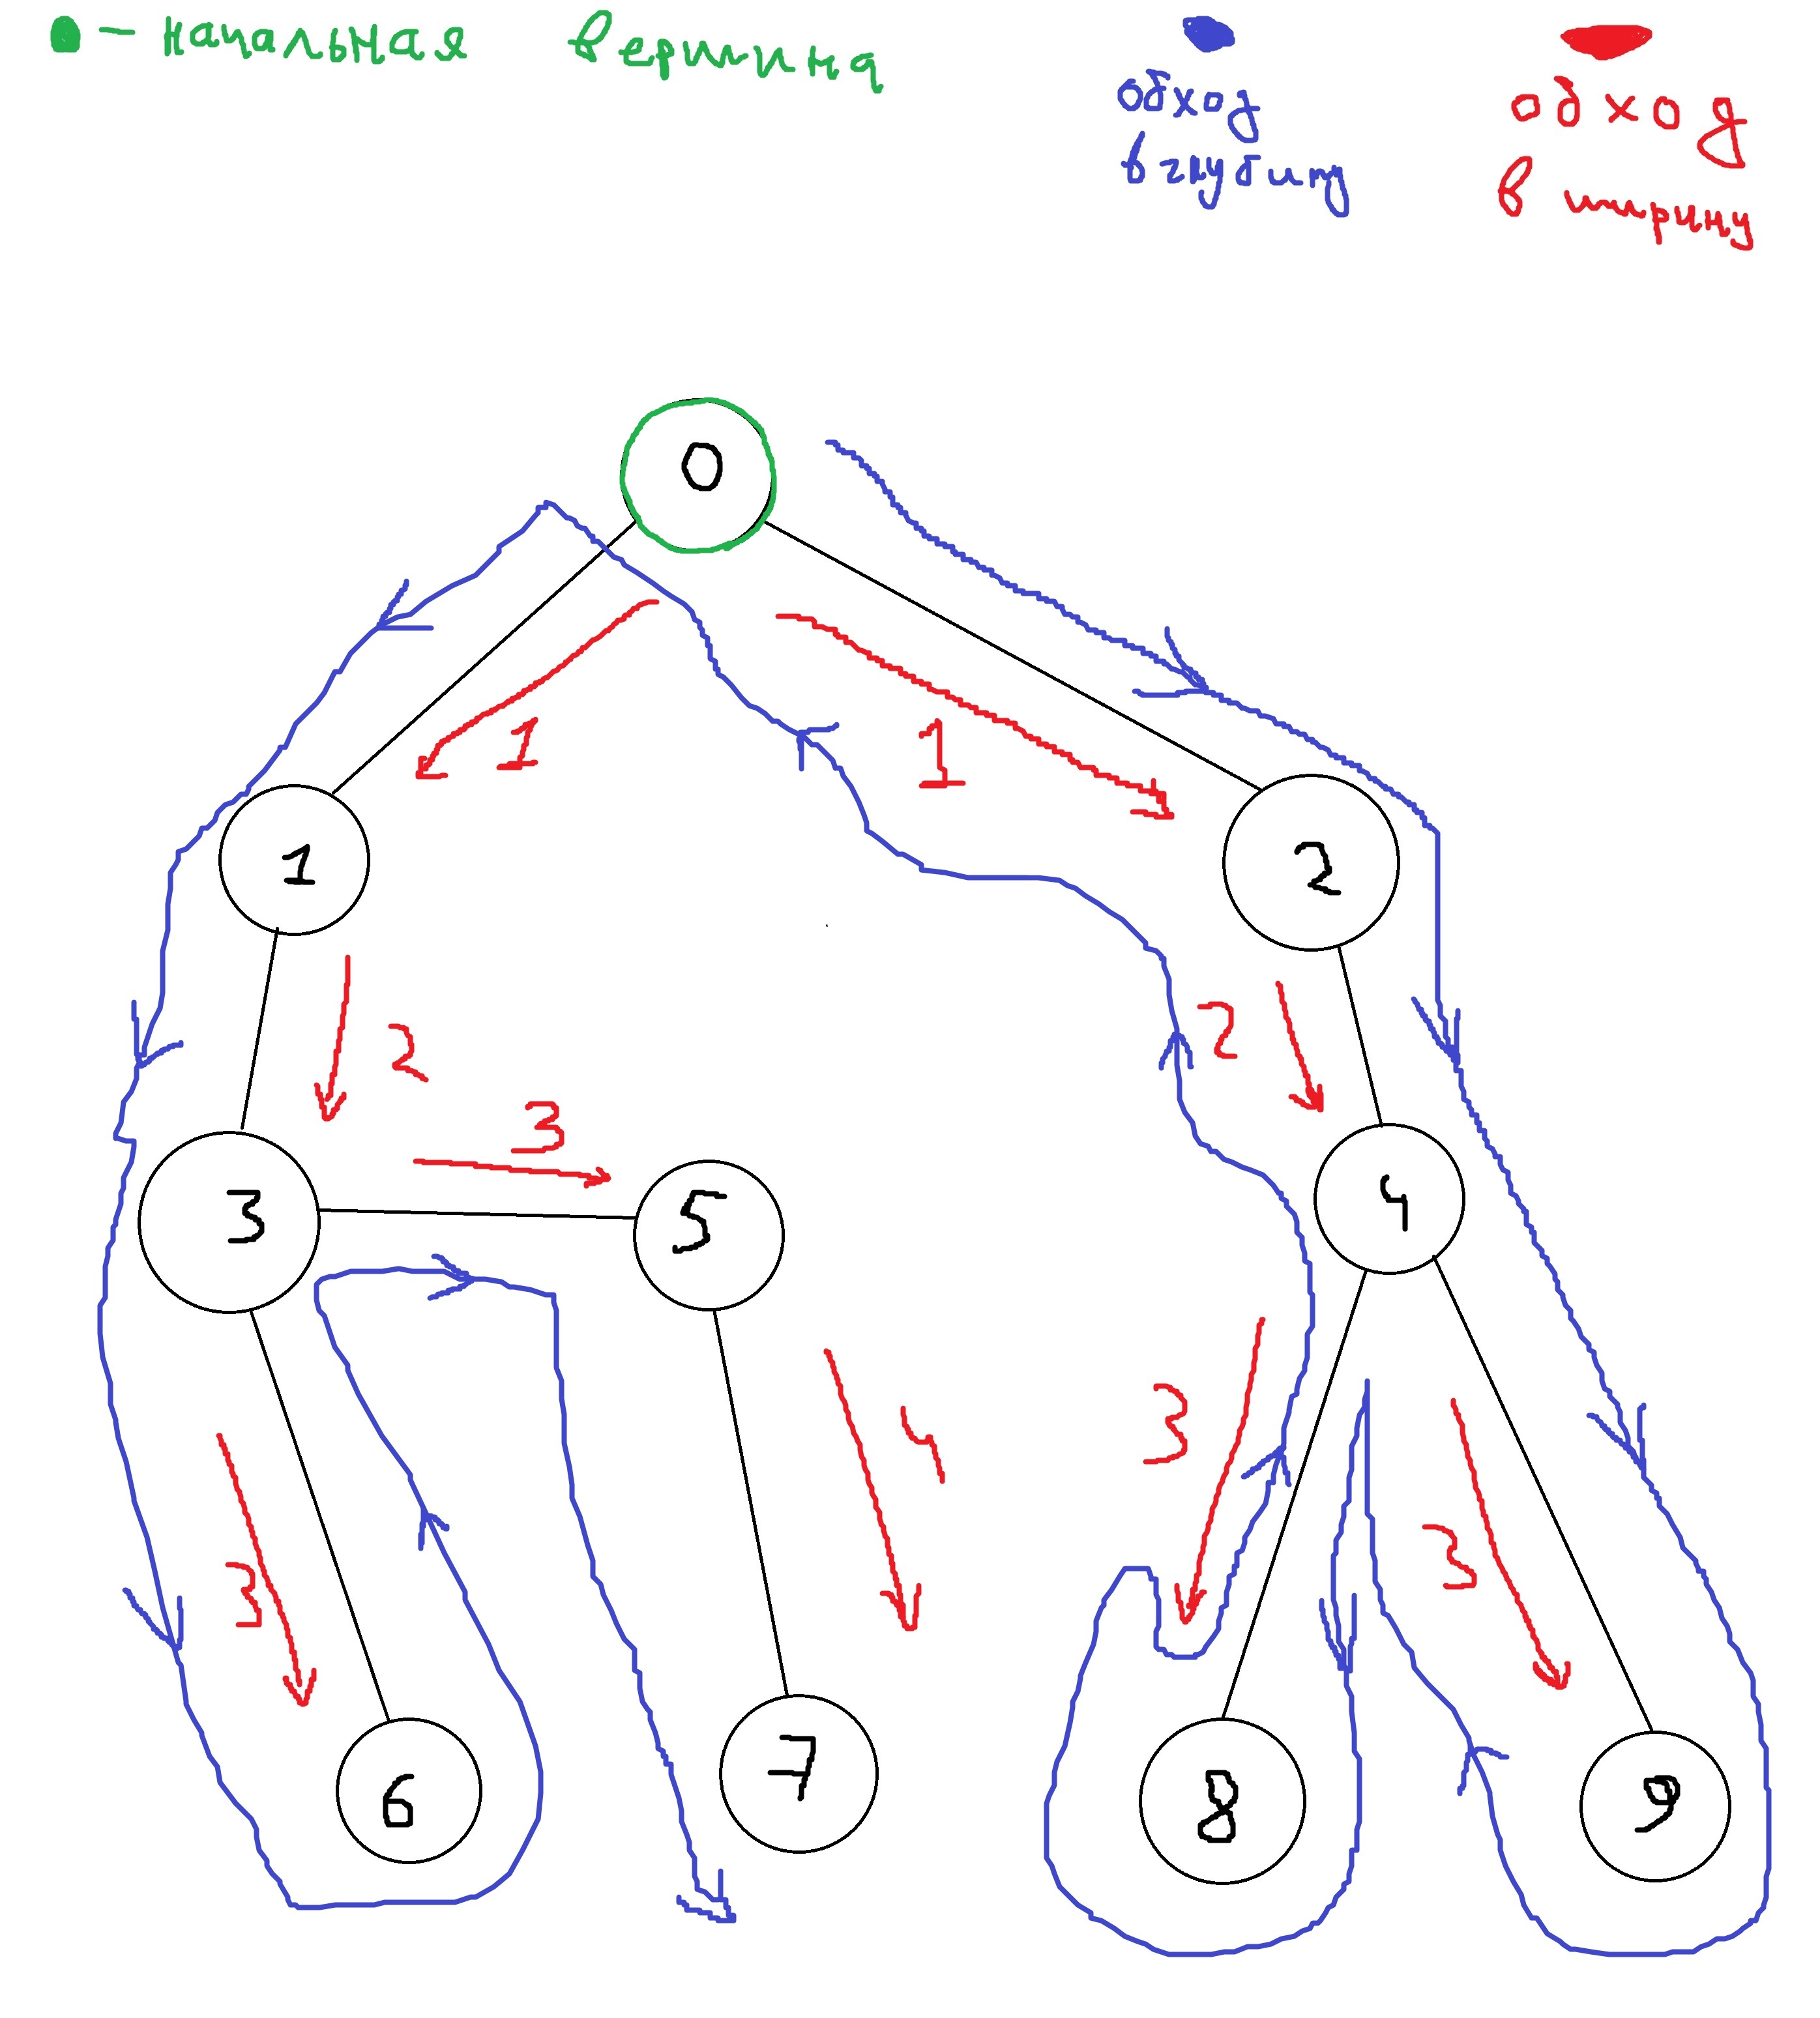 - начальная вершина
обход
в глубину
обход
в ширину
0
1
1
1
2
2
2
3
3
5
4
4
3
3
3
6
7
8
9